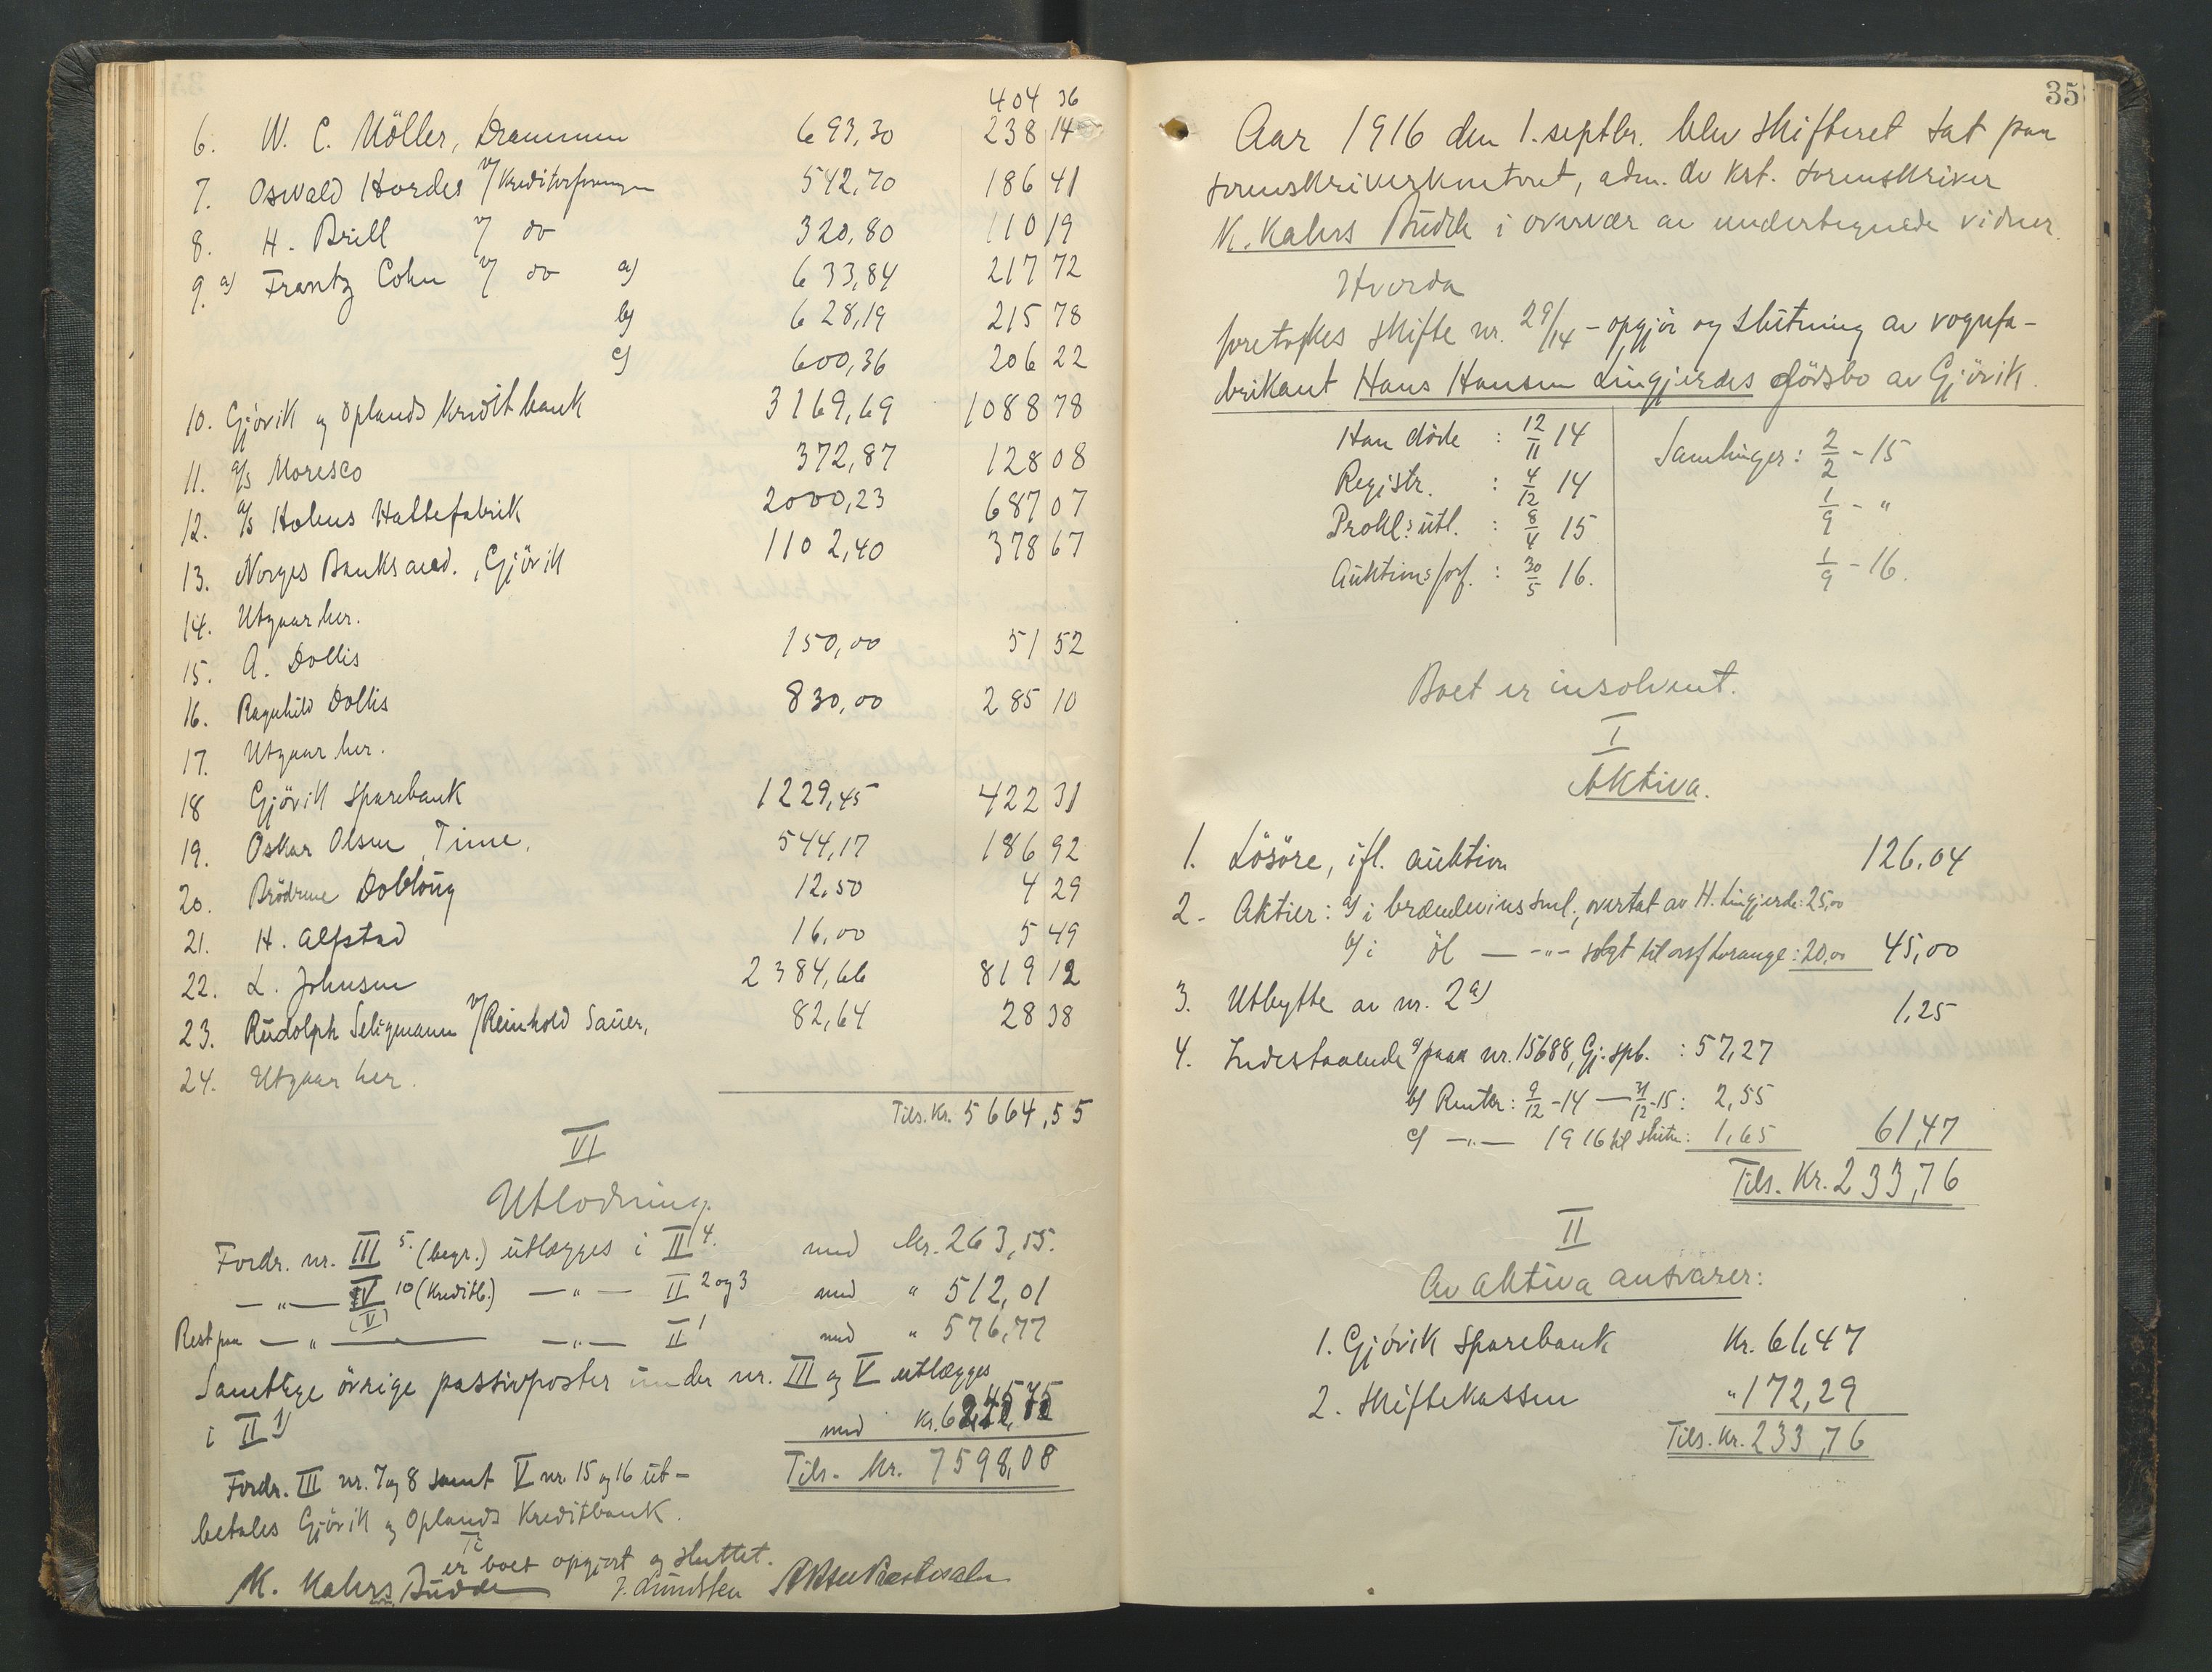 404 36
6. W. C. Möller, Drammen 693,30 238 14
7. Oswald Hordes v/ Kreditorforeningen 542,70 186 41
8. H. Brill v/ do 320,80 110 19
9. a) Frantz Cohn v/ do a) 633,84 217 72
b) 628,19 215 78
c) 600,36 206 22
10. Gjövik og Oplands Kreditbank 3169,69 1088 78
11. A/s Moresco 372,87 128 08
12. A/s Holms Hattefabrik 2000,23 687 07
13. Norges Banks avd., Gjövik 1102,40 378 67
14. Utgaar her.
15. A. Dollis 150,00 51 52
16. Ragnhild Dollis 830,00 285 10
17. Utgaar her.
18 Gjövik Sparebank 1229,45 422 31
19. Oskar Olsen, Time, 544,17 186 92
20. Brödrene Doblöug 12,50 4 29
21. H. Alfstad 16,00 5 49
22. L. Johnsen 2384,66 819 12
23. Rudolph Seligmann v/ Reinhold Sauer, 82,64 28 38
24. Utgaar her.
Tils. Kr. 5664,55
VI
Utlodning.
Fordr. nr. III 5. (begr.) utlægges i II 4. med kr. 263,55.
— " — IV 10 (Kreditb.) — " — II 2 og 3 med " 512,01
(V)
Rest paa — " — — " — II 1 med " 576,77
Samtlige övrige passivposter under nr. III og V utlægges
i II 1) med kr. 6245,75
Tils. Kr. 7598,08
Fordr. III nr. 7 og 8 samt V nr. 15 og 16 ut-
betales Gjövik og Oplands Kreditbank.
er boet opgjort og sluttet.
K. Kahrs Budde J. Lundsten

35
Aar 1916 den 1. septbr. blev skifteret sat paa
sorenskriverkontoret, adm. av kst. sorenskriver
K. Kahrs Budde i overvær av undertegnede vidner.
Hvorda
foretokes skifte nr. 29/14 - opgjör og slutning av vognfa-
brikant Hans Hansen Lingjerdes dödsbo av Gjövik.
Han döde : 12/11 14 Samlinger: 2/2 - 15
Registr. : 4/12 14 1/9 - "
Prokl: utl. : 8/4 15 1/9 - 16.
Auktionsforf. : 30/5 16.
Boet er insolvent.
I
Aktiva.
1. Lösöre, ifl. auktion 126.04
2. Aktier: a) i brændevinssml., overtat av H. Lingjerde: 25,00
b) i öl — " — solgt til orsf Lorange: 20,00 45,00
3. Utbytte av nr. 2 a) 1,25
4. Indestaaende a) paa nr. 15688, Gj. spb. : 57,27
b) Renter: 9/12 - 14 — 31/12 - 15: 2,55
c) — " — 1916 til slutn: 1,65 61,47
Tils. Kr. 233,76
II
Av aktiva ansvarer:
1. Gjövik Sparebank Kr. 61,47
2. Skiftekassen " 172,29
Tils. Kr. 233,76